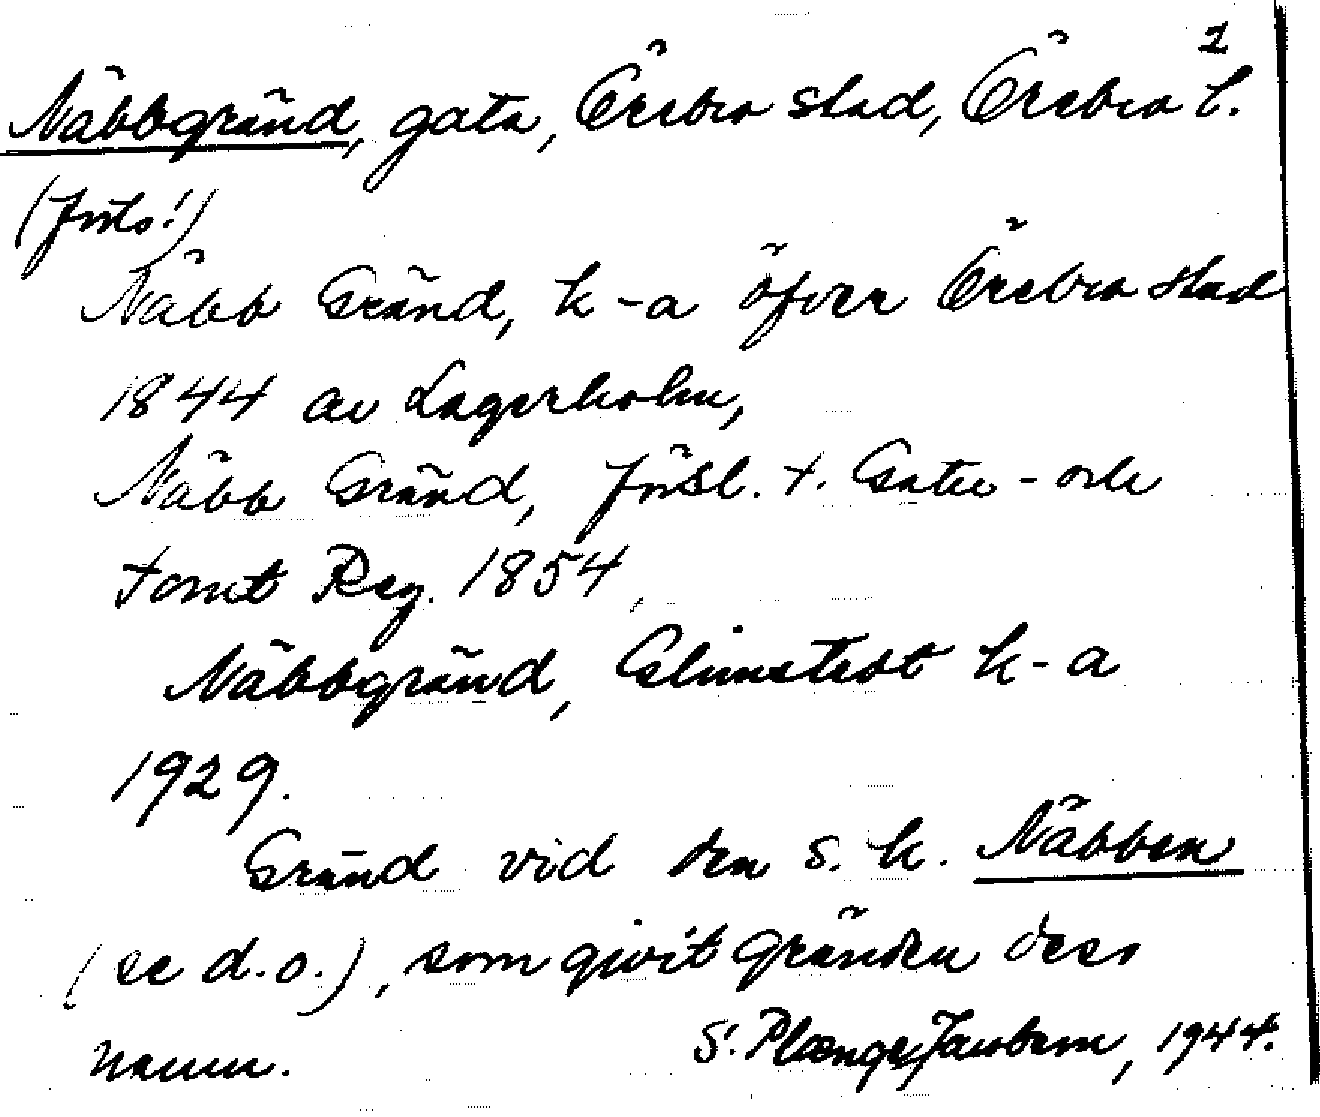 2
Näbbgränd, gata, Örebro stad, Örebro l.
(forts.!)
Näbb Gränd, k-a öfver Örebro stad
1844 av Lagerholm,
Näbb Gränd, försl. t. Gatu- och
tomt Reg. 1854,
Näbbgränd, Elmstedt k-a
1929.
Gränd vid den s.k. Näbben
(se d.o.), som givit gränden dess
namn.
S. Plænge Jacobson, 1944.